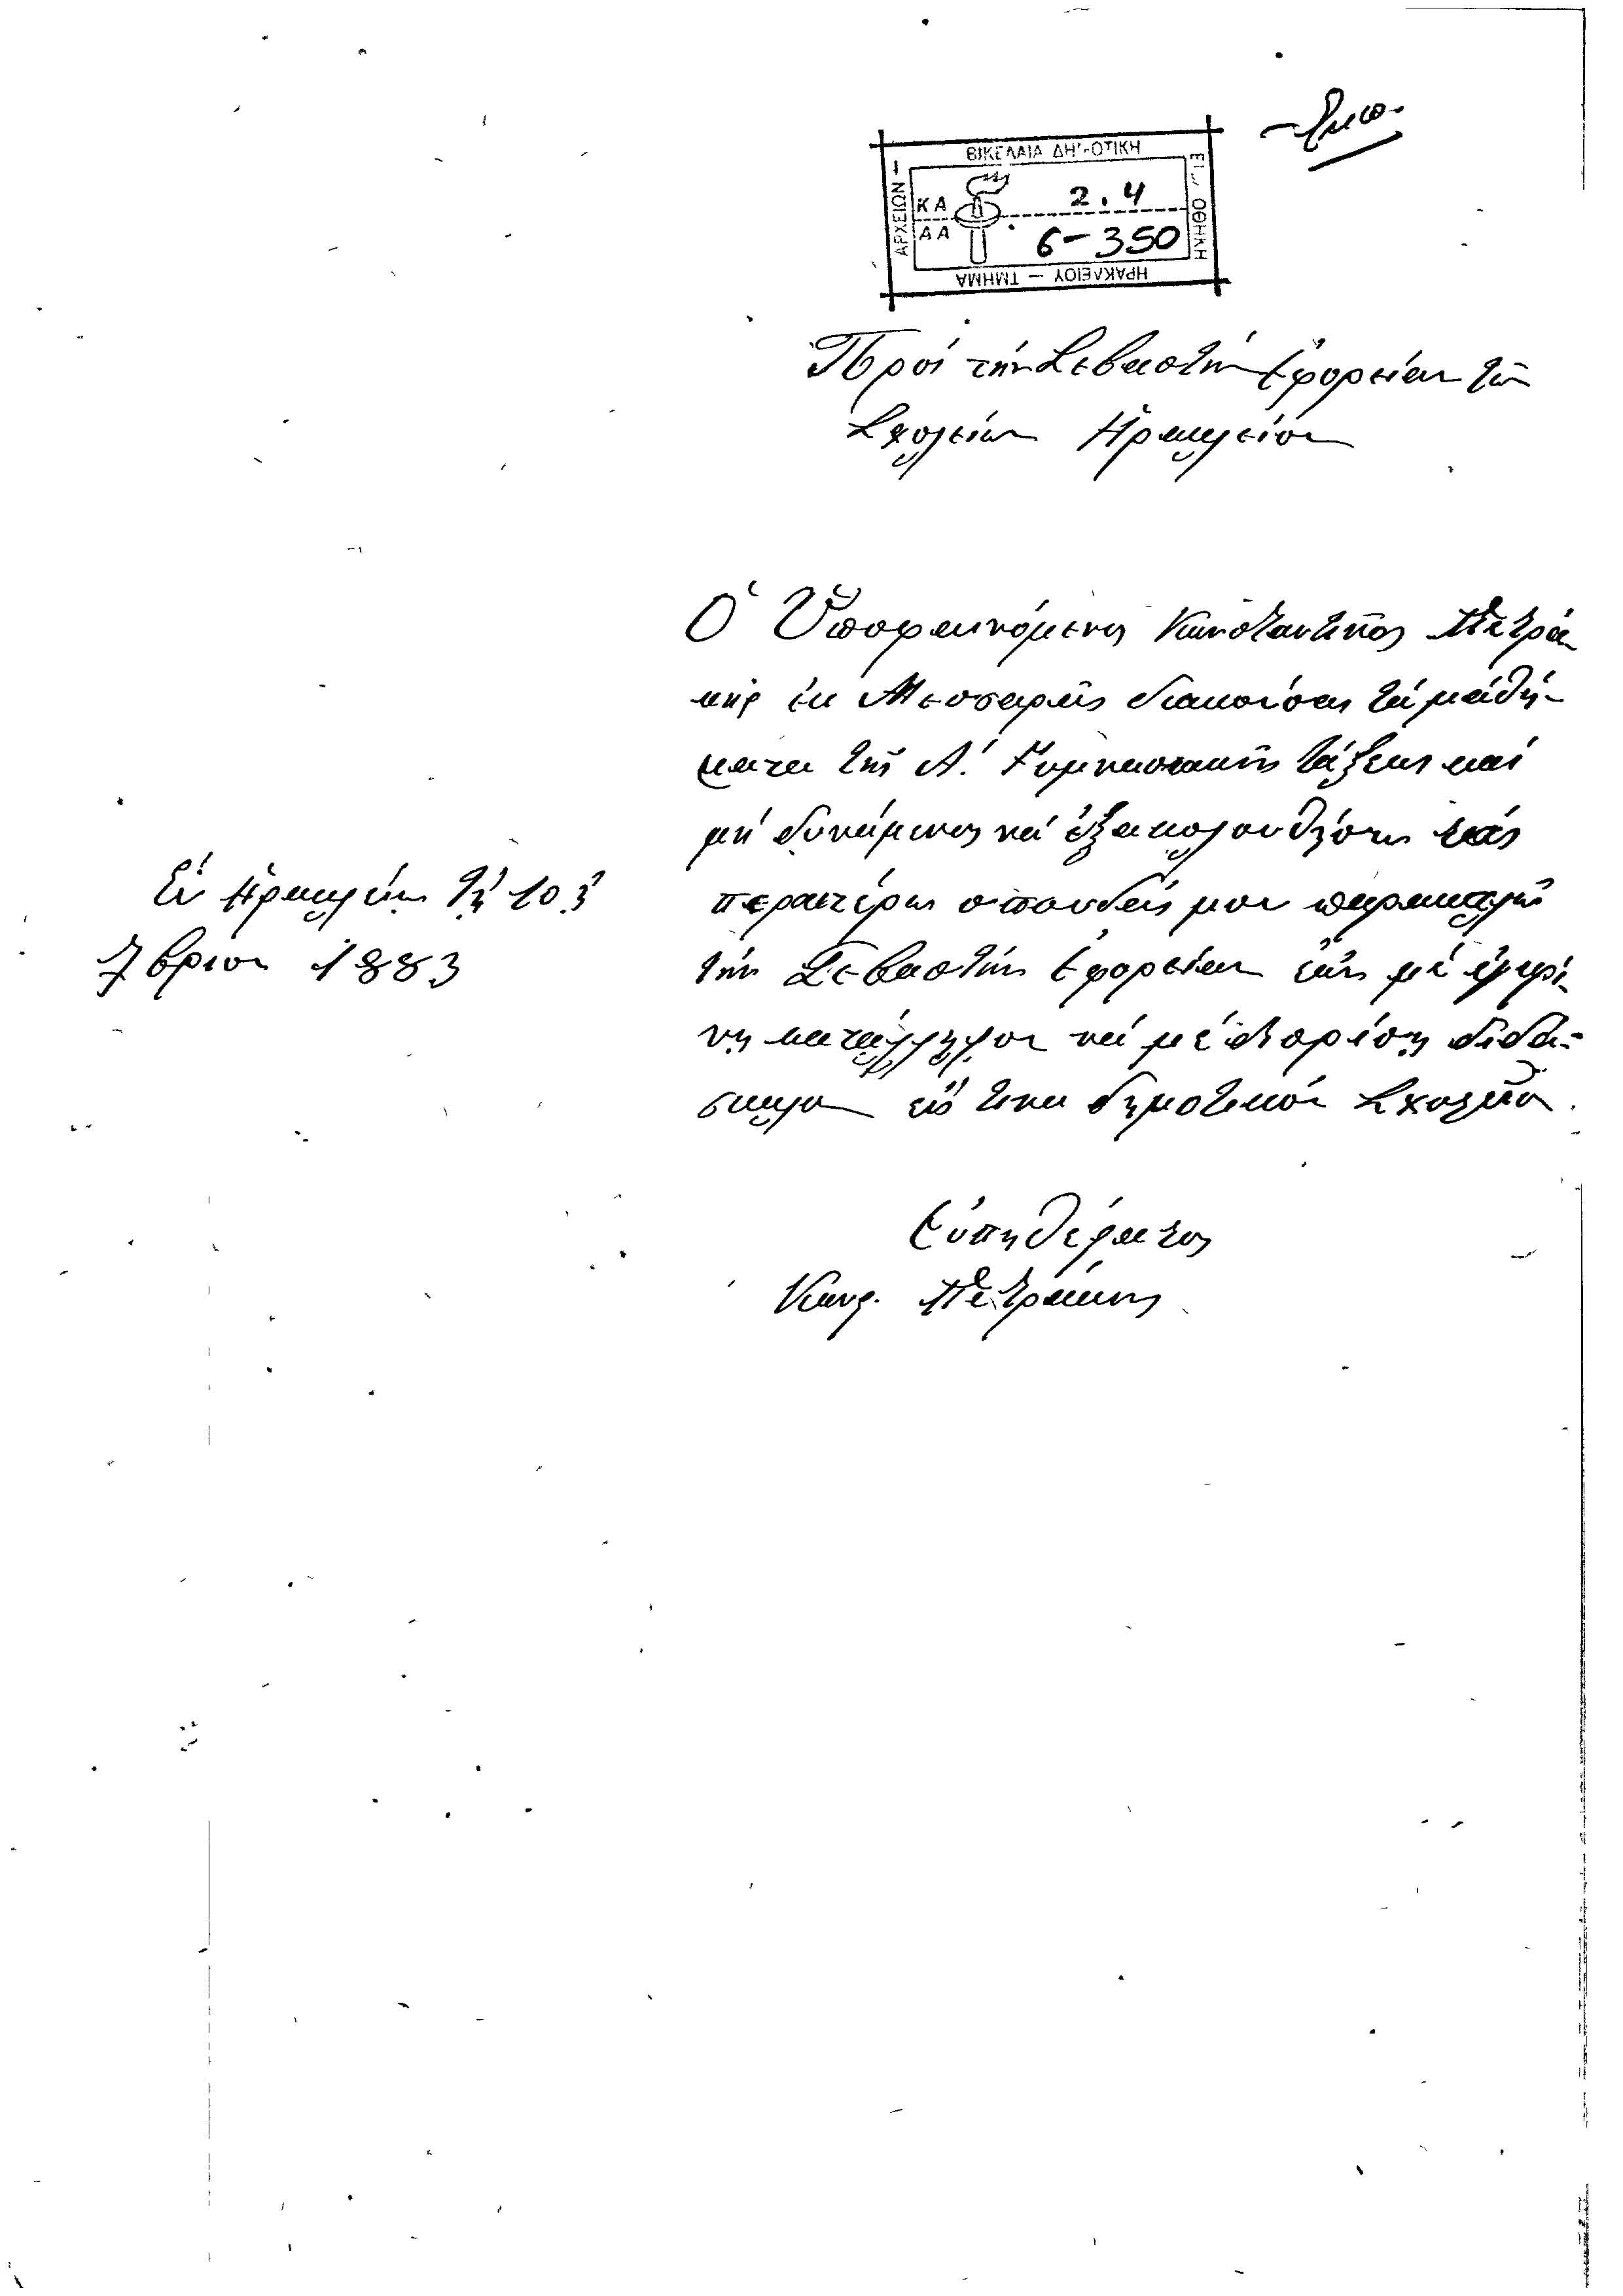 ΒΙΚΕΛΑΙΑ ΔΗΜΟΤΙΚΗ
ΑΡΧΕΙΩΝ
ΚΑ 2.4
ΑΑ 6-350
ΗΡΑΚΛΕΙΟΥ — ΤΜΗΜΑ
Πρός τήν Σεβαστήν Ἐφορείαν τῶν
Σχολείων Ἡρακλείου
Ὁ Ὑποφαινόμενος Κωνσταντῖνος Πετρά
κης ἐκ Μεσσαρᾶς διακούσας τά μαθή-
ματα τῆς Α΄. Γυμνασιακῆς τάξεως καί
μή δυνάμενος νά ἐξακολουθήσω τάς
περαιτέρω σπουδάς μου παρακαλῶ
τήν Σεβαστήν Ἐφορείαν ἐάν μέ ἐγκρί-
νῃ κατάλληλον νά μέ διορίσῃ διδά-
σκαλον εἰς τινα δημοτικόν Σχολεῖον.
Ἐν Ἡρακλείῳ τῇ 10ῃ
7βρίου 1883
Εὐπηθέστατος
Κωνς. Πετράκης